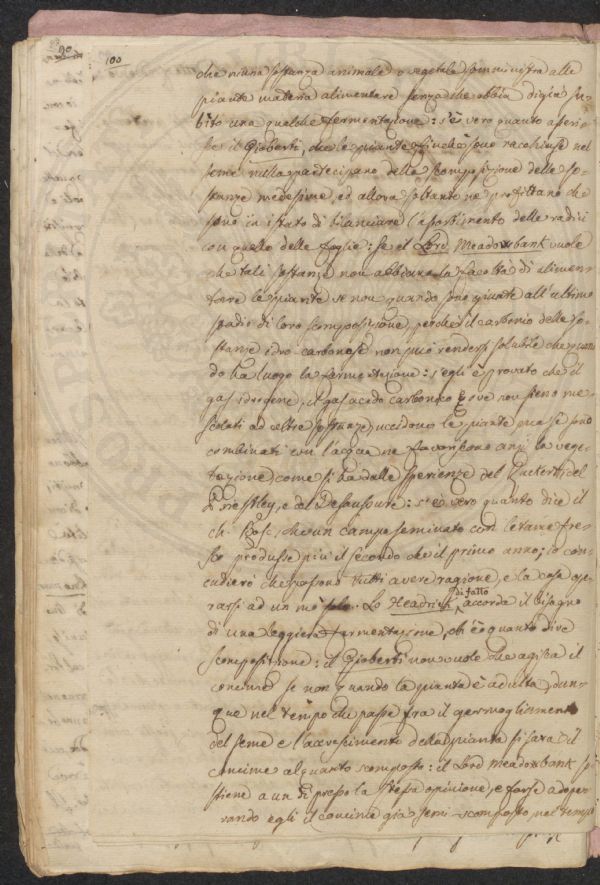 90
100
che niuna sostanza animale o vegetale somministra alle
piante materia alimentare senza che abbia di già su-
bito una qualche fermentazione: s'è vero quanto asseri-
il Gioberti, che le piante finchè sono racchiuse nel
seme nulla partecipano della scomposizione delle so-
stanze medesime, ed allora soltanto ne profittano che
sono in istato di bilanciare l'assorbimento delle radici
con quello delle foglie: se il Lord Meadowbank vuole
che tali sostanze non abbiano la facoltà di alimen-
tare le piante se non quando sono giunte all'ultimo
stadio di loro scomposizione, perchè il carbonio delle so-
stanze idro-carbonose non può rendersi solubile che quan
do ha luogo la fermentazione: s'egli è provato che il
gas idrogene, il gas acido carbonico ove non sieno me-
scolati ad altre sostanze, uccidono le piante, ma se sono
combinati con l'acqua ne favoriscono anzi la vege-
tazione, come si ha dalle sperienze del del
Priestley, e del Desaussure: s'è vero quanto dice il
ch. Bosc, che un campo seminato con letame fre-
sco produsse più il secondo che il primo anno; io con-
cluderò che possono tutti avere ragione, e la cosa ope-
rarsi ad un mo Lo Headrick di fatto accorda il bisogno
di una leggiera fermentazione, ch'è quanto dire
scomposizione: il Gioberti non vuole che agisca il
concime se non quando la pianta è adulta, dun-
que nel tempo che passa fra il germogliamento
del seme e l'accrescimento della pianta si sarà il
concime alquanto scomposto: il Lord Meadowbank so
stiene a un di presso la stessa opinione, e forse adope-
rando egli il concime già semi-scomposto, nel tempo